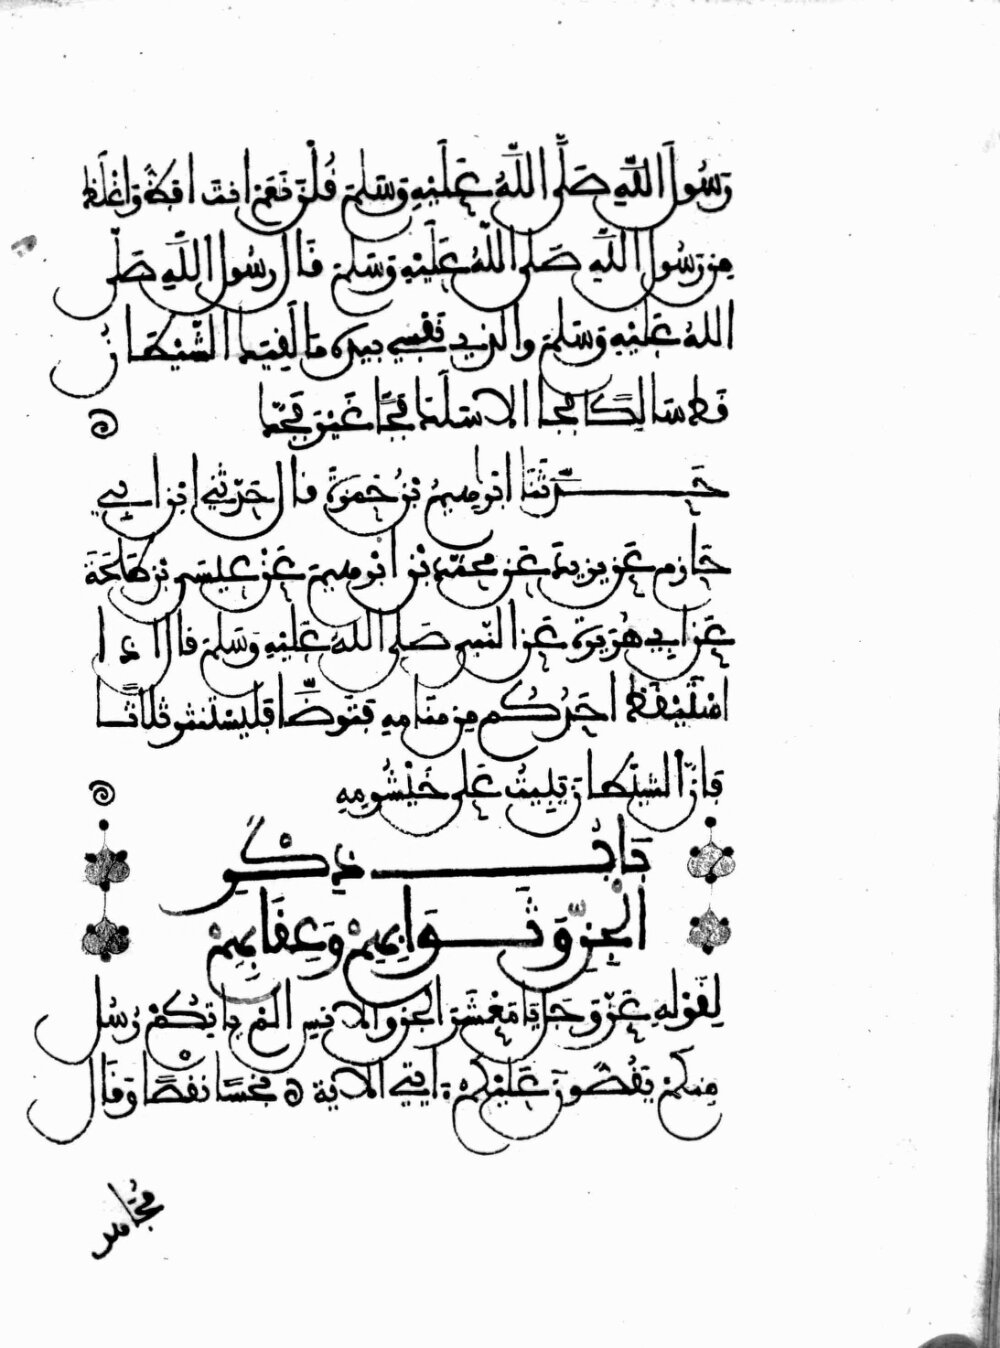 رَسُولَ اللَّهِ صَلَّى اللَّهُ عَلَيْهِ وَسَلَّمَ قُلْنَ نَعَمْ انتَ افظُّ وَاغْلَظُ
مِن رَسُولِ اللَّهِ صَلى اللَّهُ عَلَيْهِ وَسَلم قَال رسُول اللَّهِ صَلّى
اللهُ عَلَيْهِ وَسَلم والذي نَفْسِي بيده مَا لَقِيَك الشَّيْطَانُ
قَط سَالِكًا فجا الا سَلَكَ فَجًّا غَيْرَ فَجِّك
حَدَّثَنَا ابْرٰهِيمُ بْنُ حَمْزَةَ قال حَدّثني ابْن ابِي
حَازم عَن يزيد عَن محمّد بْن ابْرٰهيم عَنْ عيسَى بْن طَلحَةَ
عَن ابي هُرَيرَة عَن النّبي صَلى اللهُ عَلَيْهِ وَسَلم قال اذا
اسْتَيْقَظَ احَدُكُم مِن مَنَامِهِ فَتَوَضَّأ فليَسْتنثر ثلاثًا
فَانّ الشيْطَان يَبِيتُ عَلى خَيْشُومِهِ
بَابُ ذِكْرِ
الْجِنِّ وَثَوَابِهِمْ وَعِقَابِهِمْ
لِقَوْلِهِ عَزّ وَجَل يَا مَعْشَرَ الجن وَالانسِ المْ يَاتِكُمْ رُسُل
مِنكمْ يَقُصُّونَ عَلَيْكمْ ءايٰتي الاية بخسًا نقصًا وَقَال
مُجَاهِد